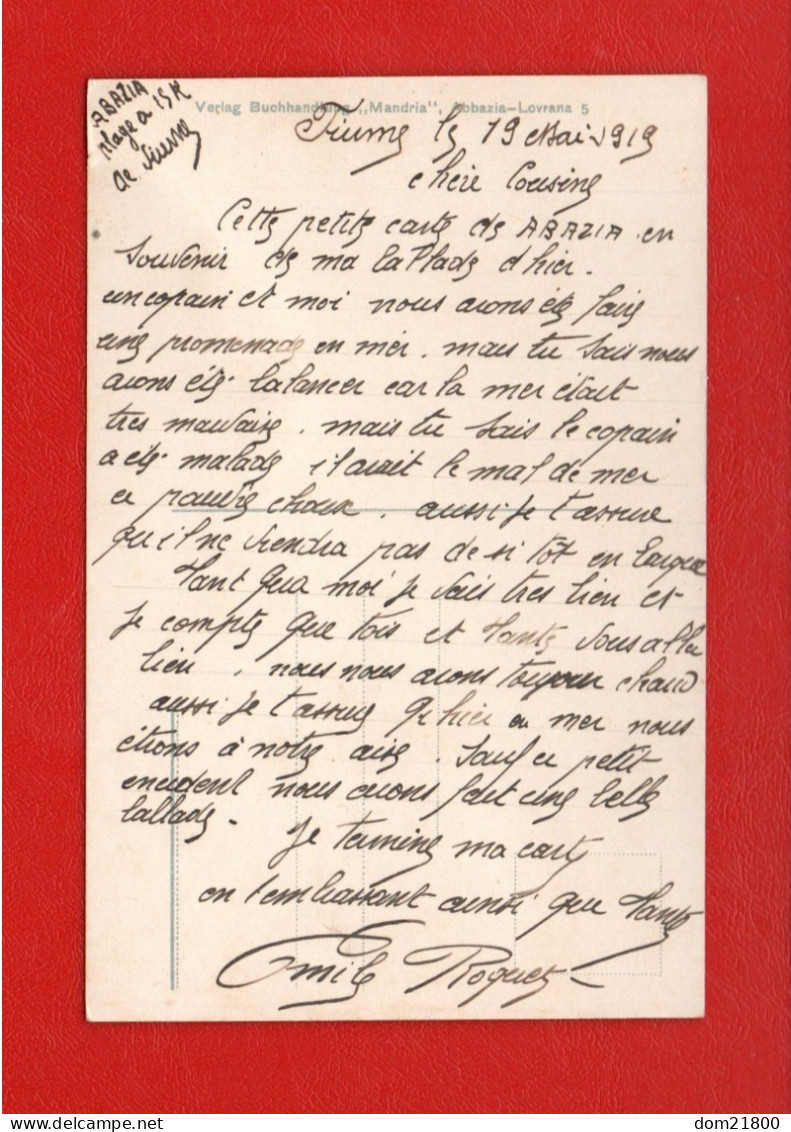 ABAZIA
plage a 15K
de Fiume
Verlag Buchhandlung „Mandria", Abbazia-Lovrana 5
Fiume le 19 Mai 1919
chère Cousine
Cette petite carte de ABAZIA en
Souvenir de ma ballade d'hier.
un copain et moi nous avons été faire
une promenade en mer. mais tu sais nous
avons été balancer car la mer était
tres mauvaise. mais tu sais le copain
a été malade il avait le mal de mer
ce pauvre choux. aussi je t'assure
qu'il ne viendra pas de si tôt en barque
Tant qua moi je vais tres bien et
je compte que tois et Tante vous allez
bien. nous nous avons toujour chaud
aussi je t'assure q'hier en mer nous
étions à notre aise. Sauf ce petit
encident nous avons fait une belle
ballade.
Je termine ma carte
en t'embrassant ainssi que Tante
Emile Roquet
delcampe.net
dom21800